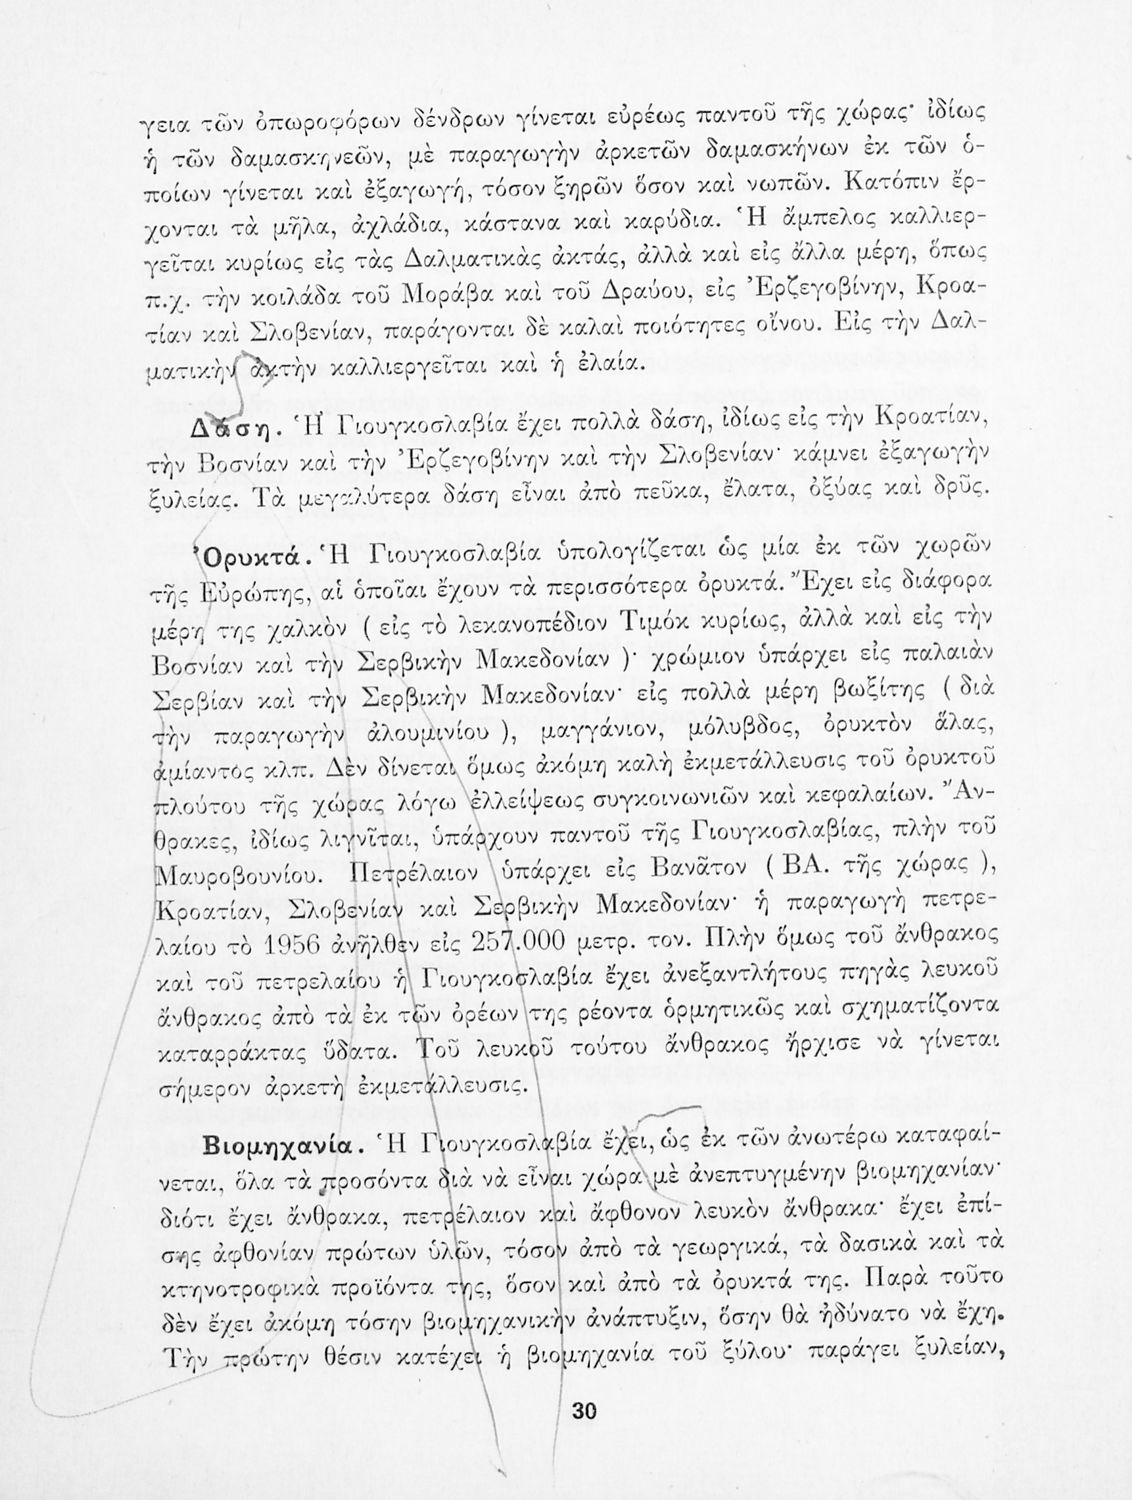 γεια τῶν ὀπωροφόρων δένδρων γίνεται εὐρέως παντοῦ τῆς χώρας· ἰδίως
ἡ τῶν δαμασκηνεῶν, μὲ παραγωγὴν ἀρκετῶν δαμασκήνων ἐκ τῶν ὁ-
ποίων γίνεται καὶ ἐξαγωγή, τόσον ξηρῶν ὅσον καὶ νωπῶν. Κατόπιν ἔρ-
χονται τὰ μῆλα, ἀχλάδια, κάστανα καὶ καρύδια. Ἡ ἄμπελος καλλιερ-
γεῖται κυρίως εἰς τὰς Δαλματικὰς ἀκτάς, ἀλλὰ καὶ εἰς ἄλλα μέρη, ὅπως
π.χ. τὴν κοιλάδα τοῦ Μοράβα καὶ τοῦ Δραύου, εἰς Ἐρζεγοβίνην, Κροα-
τίαν καὶ Σλοβενίαν, παράγονται δὲ καλαὶ ποιότητες οἴνου. Εἰς τὴν Δαλ-
ματικὴν ἀκτὴν καλλιεργεῖται καὶ ἡ ἐλαία.
Δάση. Ἡ Γιουγκοσλαβία ἔχει πολλὰ δάση, ἰδίως εἰς τὴν Κροατίαν,
τὴν Βοσνίαν καὶ τὴν Ἐρζεγοβίνην καὶ τὴν Σλοβενίαν· κάμνει ἐξαγωγὴν
ξυλείας. Τὰ μεγαλύτερα δάση εἶναι ἀπὸ πεῦκα, ἔλατα, ὀξύας καὶ δρῦς.
Ὀρυκτά. Ἡ Γιουγκοσλαβία ὑπολογίζεται ὡς μία ἐκ τῶν χωρῶν
τῆς Εὐρώπης, αἱ ὁποῖαι ἔχουν τὰ περισσότερα ὀρυκτά. Ἔχει εἰς διάφορα
μέρη της χαλκὸν ( εἰς τὸ λεκανοπέδιον Τιμόκ κυρίως, ἀλλὰ καὶ εἰς τὴν
Βοσνίαν καὶ τὴν Σερβικὴν Μακεδονίαν )· χρώμιον ὑπάρχει εἰς παλαιὰν
Σερβίαν καὶ τὴν Σερβικὴν Μακεδονίαν· εἰς πολλὰ μέρη βωξίτης ( διὰ
τὴν παραγωγὴν ἀλουμινίου ), μαγγάνιον, μόλυβδος, ὀρυκτὸν ἅλας,
ἀμίαντος κλπ. Δὲν δίνεται ὅμως ἀκόμη καλὴ ἐκμετάλλευσις τοῦ ὀρυκτοῦ
πλούτου τῆς χώρας λόγω ἐλλείψεως συγκοινωνιῶν καὶ κεφαλαίων. Ἄν-
θρακες, ἰδίως λιγνῖται, ὑπάρχουν παντοῦ τῆς Γιουγκοσλαβίας, πλὴν τοῦ
Μαυροβουνίου. Πετρέλαιον ὑπάρχει εἰς Βανᾶτον ( ΒΑ. τῆς χώρας ),
Κροατίαν, Σλοβενίαν καὶ Σερβικὴν Μακεδονίαν· ἡ παραγωγὴ πετρε-
λαίου τὸ 1956 ἀνῆλθεν εἰς 257.000 μετρ. τον. Πλὴν ὅμως τοῦ ἄνθρακος
καὶ τοῦ πετρελαίου ἡ Γιουγκοσλαβία ἔχει ἀνεξαντλήτους πηγὰς λευκοῦ
ἄνθρακος ἀπὸ τὰ ἐκ τῶν ὀρέων της ρέοντα ὁρμητικῶς καὶ σχηματίζοντα
καταρράκτας ὕδατα. Τοῦ λευκοῦ τούτου ἄνθρακος ἤρχισε νὰ γίνεται
σήμερον ἀρκετὴ ἐκμετάλλευσις.
Βιομηχανία. Ἡ Γιουγκοσλαβία ἔχει, ὡς ἐκ τῶν ἀνωτέρω καταφαί-
νεται, ὅλα τὰ προσόντα διὰ νὰ εἶναι χώρα μὲ ἀνεπτυγμένην βιομηχανίαν·
διότι ἔχει ἄνθρακα, πετρέλαιον καὶ ἄφθονον λευκὸν ἄνθρακα· ἔχει ἐπί-
σης ἀφθονίαν πρώτων ὑλῶν, τόσον ἀπὸ τὰ γεωργικά, τὰ δασικὰ καὶ τὰ
κτηνοτροφικὰ προϊόντα της, ὅσον καὶ ἀπὸ τὰ ὀρυκτά της. Παρὰ τοῦτο
δὲν ἔχει ἀκόμη τόσην βιομηχανικὴν ἀνάπτυξιν, ὅσην θὰ ἠδύνατο νὰ ἔχη.
Τὴν πρώτην θέσιν κατέχει ἡ βιομηχανία τοῦ ξύλου· παράγει ξυλείαν,
30